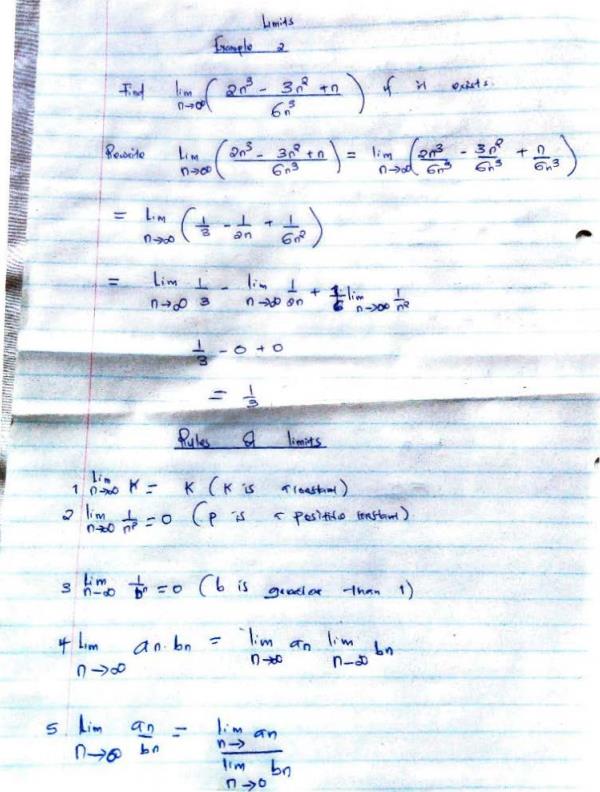 Limits
Example 2
Find lim n→∞ ( (2n³ - 3n² + n) / 6n³ ) if it exists.
Rewrite lim n→∞ ( (2n³ - 3n² + n) / 6n³ ) = lim n→∞ ( 2n³/6n³ - 3n²/6n³ + n/6n³ )
= lim n→∞ ( 1/3 - 1/2n + 1/6n² )
= lim n→∞ 1/3 - lim n→∞ 1/2n + 1/6 lim n→∞ 1/n²
1/3 - 0 + 0
= 1/3
Rules of limits
1 lim n→∞ K = K (K is a constant)
2 lim n→∞ 1/nᵖ = 0 (p is a positive constant)
3 lim n→∞ 1/bⁿ = 0 (b is greater than 1)
4 lim n→∞ an · bn = lim n→∞ an lim n→∞ bn
5 lim n→∞ an/bn = lim n→ an / lim n→0 bn